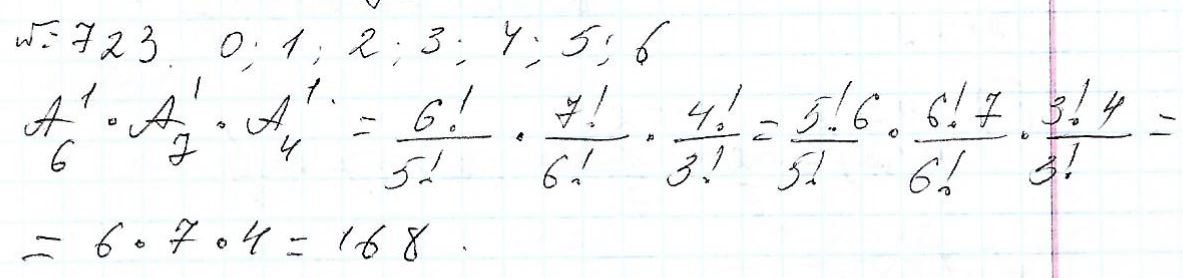 № 723. 0; 1; 2; 3; 4; 5; 6
A₆¹ · A₇¹ · A₄¹ = 6!/5! · 7!/6! · 4!/3! = 5!6/5! · 6!7/6! · 3!4/3! =
= 6 · 7 · 4 = 168.